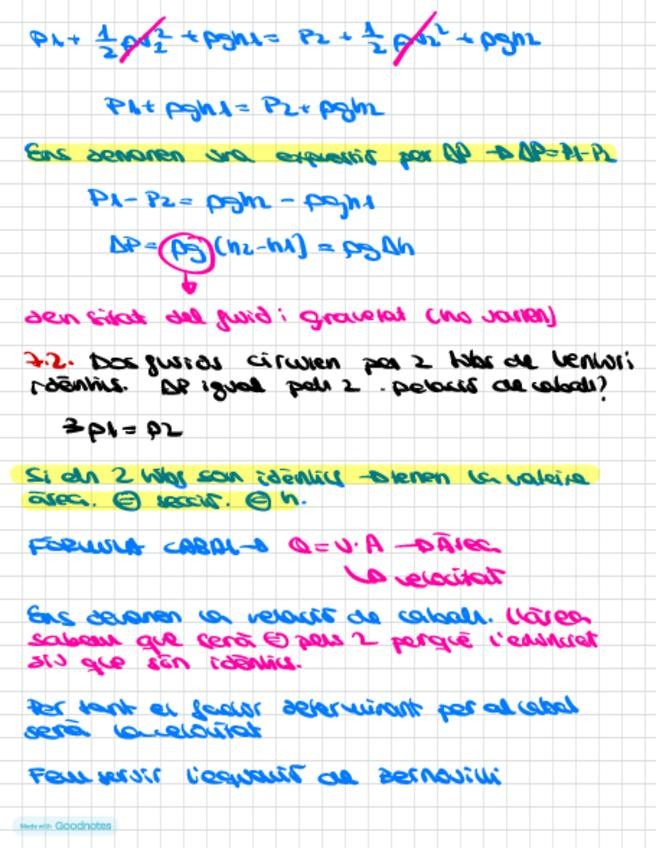 P1 + 1/2 ρv₁² + ρgh1 = P2 + 1/2 ρv₂² + ρgh2
P1 + ρgh1 = P2 + ρgh2
Ens demanen una expressió per ΔP → ΔP = P1 - P2
P1 - P2 = ρgh2 - ρgh1
ΔP = ρg (h2 - h1) = ρgΔh
densitat del fluid i gravetat (no varien)
7.2. Dos fluids circulen per 2 tubs de Venturi
idèntics. ΔP igual pels 2. Relació de cabals?
ρ1 = ρ2
Si els 2 tubs son idèntics → tenen la mateixa
àrea. = secció. = h.
FÓRMULA CABAL → Q = v · A → Àrea
↳ velocitat
Ens demanen la relació de cabals. L'àrea
sabem que serà = pels 2 perquè l'enunciat
diu que són idèntics.
Per tant el factor determinant per al cabal
serà la velocitat
Fem servir l'equació de Bernoulli
Made with Goodnotes